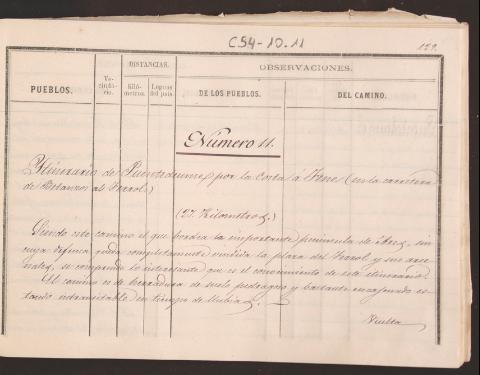 C54-10.11
129.
DISTANCIAS.
OBSERVACIONES.
PUEBLOS.
Ve-
cinda-
rio.
Kiló-
metros.
Leguas
del país
DE LOS PUEBLOS.
DEL CAMINO.
Número 11.
Itinerario de Puentedeume, por la Costa á Fene (en la carretera
de Betanzos al Ferrol)
(27. Kilometros.)
Siendo este camino el que bordea la importante península de Ares, sin
cuya defensa queda completamente vendida la plaza del Ferrol y sus arse-
nales, se comprende lo interesante que es el conocimiento de este itinerario.
El camino es de herradura de suelo pedregoso y bastante encajonado es-
tando intransitable en tiempo de lluvias.
Vuelta